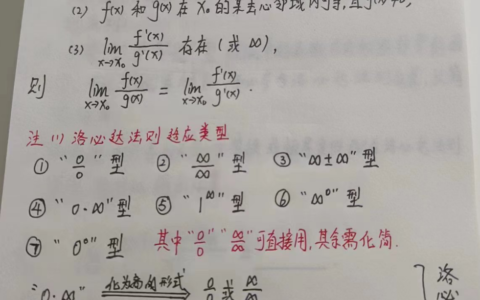 (2) f(x) 和 g(x) 在 x₀ 的某去心邻域内可导, 且 g'(x)≠0,
(3) lim x→x₀ f'(x)/g'(x) 存在 (或 ∞),
则 lim x→x₀ f(x)/g(x) = lim x→x₀ f'(x)/g'(x).
注 (1) 洛必达法则适应类型
① "0/0" 型 ② "∞/∞" 型 ③ "∞±∞" 型
④ "0·∞" 型 ⑤ "1^∞" 型 ⑥ "∞⁰" 型
⑦ "0⁰" 型 其中 "0/0" "∞/∞" 可直接用, 其余需化简.
"0·∞" 化为商的形式 0/0 或 ∞/∞
洛
必